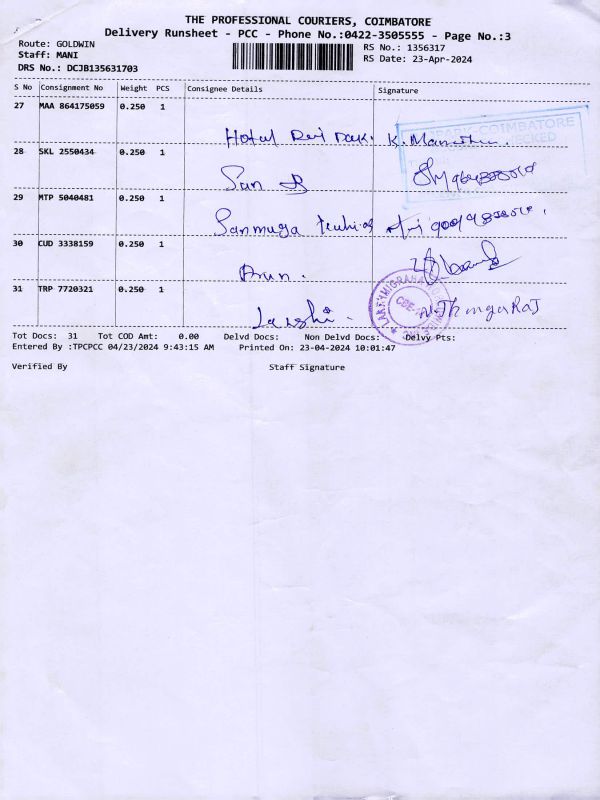 THE PROFESSIONAL COURIERS, COIMBATORE
Delivery Runsheet - PCC - Phone No.:0422-3505555 - Page No.:3
Route: GOLDWIN
Staff: MANI
DRS No.: DCJB135631703
RS No.: 1356317
RS Date: 23-Apr-2024
S No Consignment No Weight PCS Consignee Details Signature
27 MAA 864175059 0.250 1
Hotal
28 SKL 2550434 0.250 1
Sun
29 MTP 5040481 0.250 1
Sanmuga
30 CUD 3338159 0.250 1
Arun.
31 TRP 7720321 0.250 1
N.ThangaRaJ
COIMBATORE
Tot Docs: 31 Tot COD Amt: 0.00 Delvd Docs: Non Delvd Docs: Delvy Pts:
Entered By :TPCPCC 04/23/2024 9:43:15 AM Printed On: 23-04-2024 10:01:47
Verified By Staff Signature